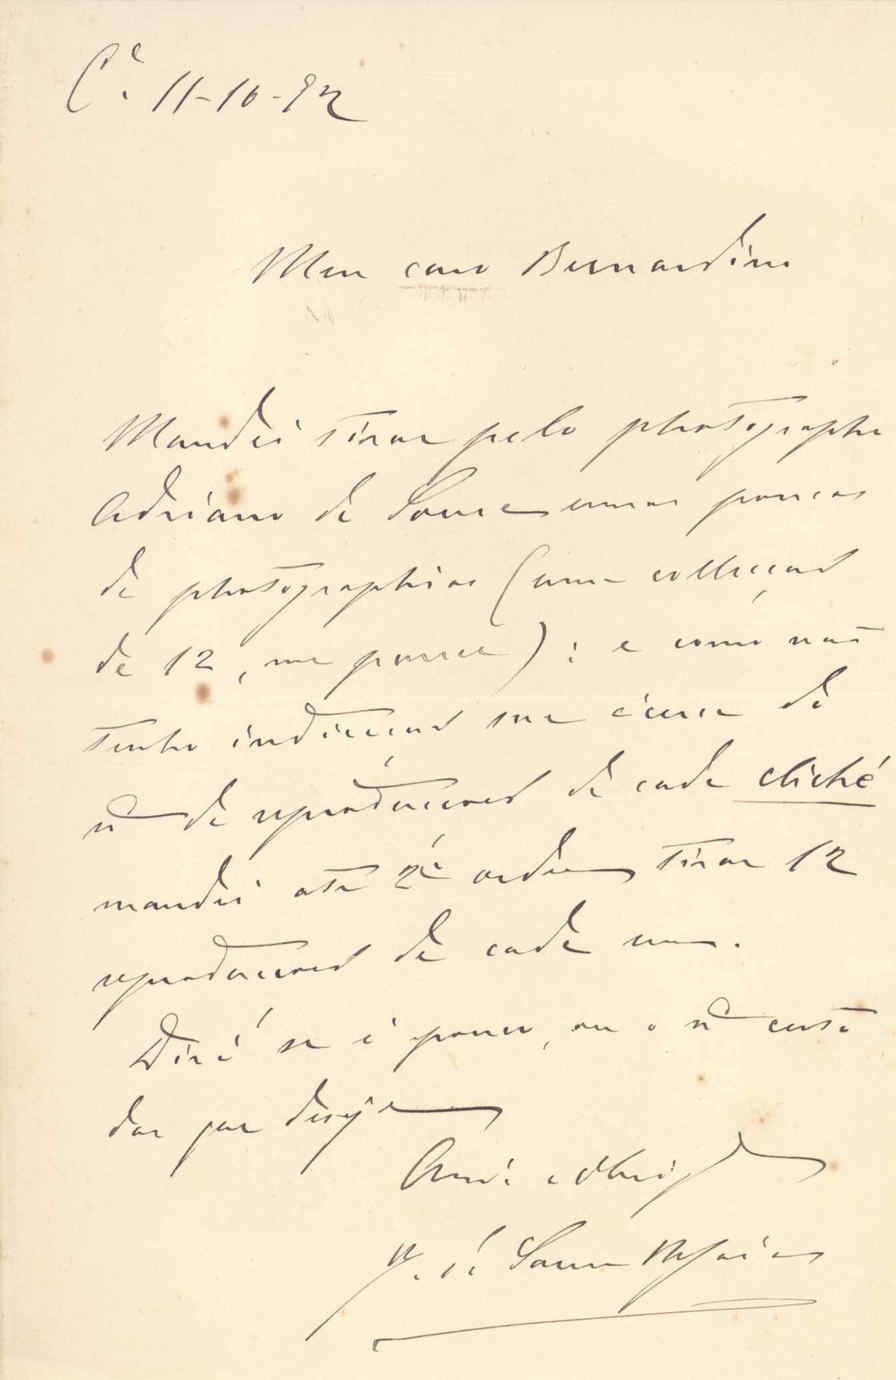 C.ª 11-10-92
Meu caro Bernardino
Mandei tirar pelo photographo
Adriano de Sousa umas poucas
de photographias (uma collecção
de 12, me parece): e como não
tenho indicação sua ácerca do
nº de reproducções de cada cliché
mandei até 2ª ordem tirar 12
reproducções de cada um.
Dirá se é pouco, ou o nº certo
das que deseja
Amº e obrigdº
de Sousa Refoios